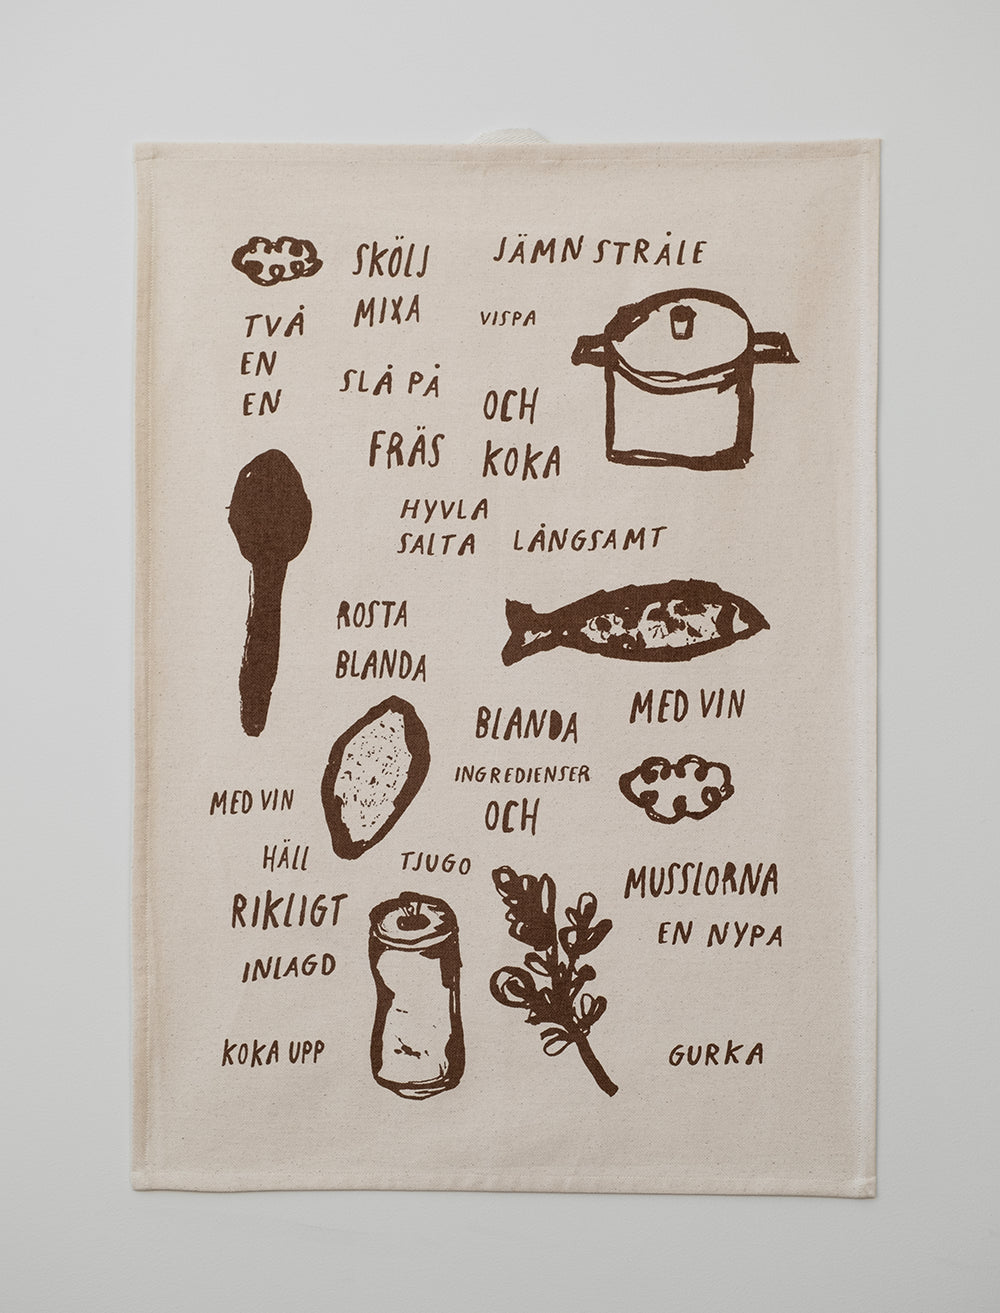 SKÖLJ
JÄMN STRÅLE
MIXA
VISPA
TVÅ
EN
EN
SLÅ PÅ
OCH
FRÄS
KOKA
HYVLA
SALTA
LÅNGSAMT
ROSTA
BLANDA
MED VIN
BLANDA
INGREDIENSER
OCH
MED VIN
HÄLL
TJUGO
RIKLIGT
INLAGD
MUSSLORNA
EN NYPA
KOKA UPP
GURKA